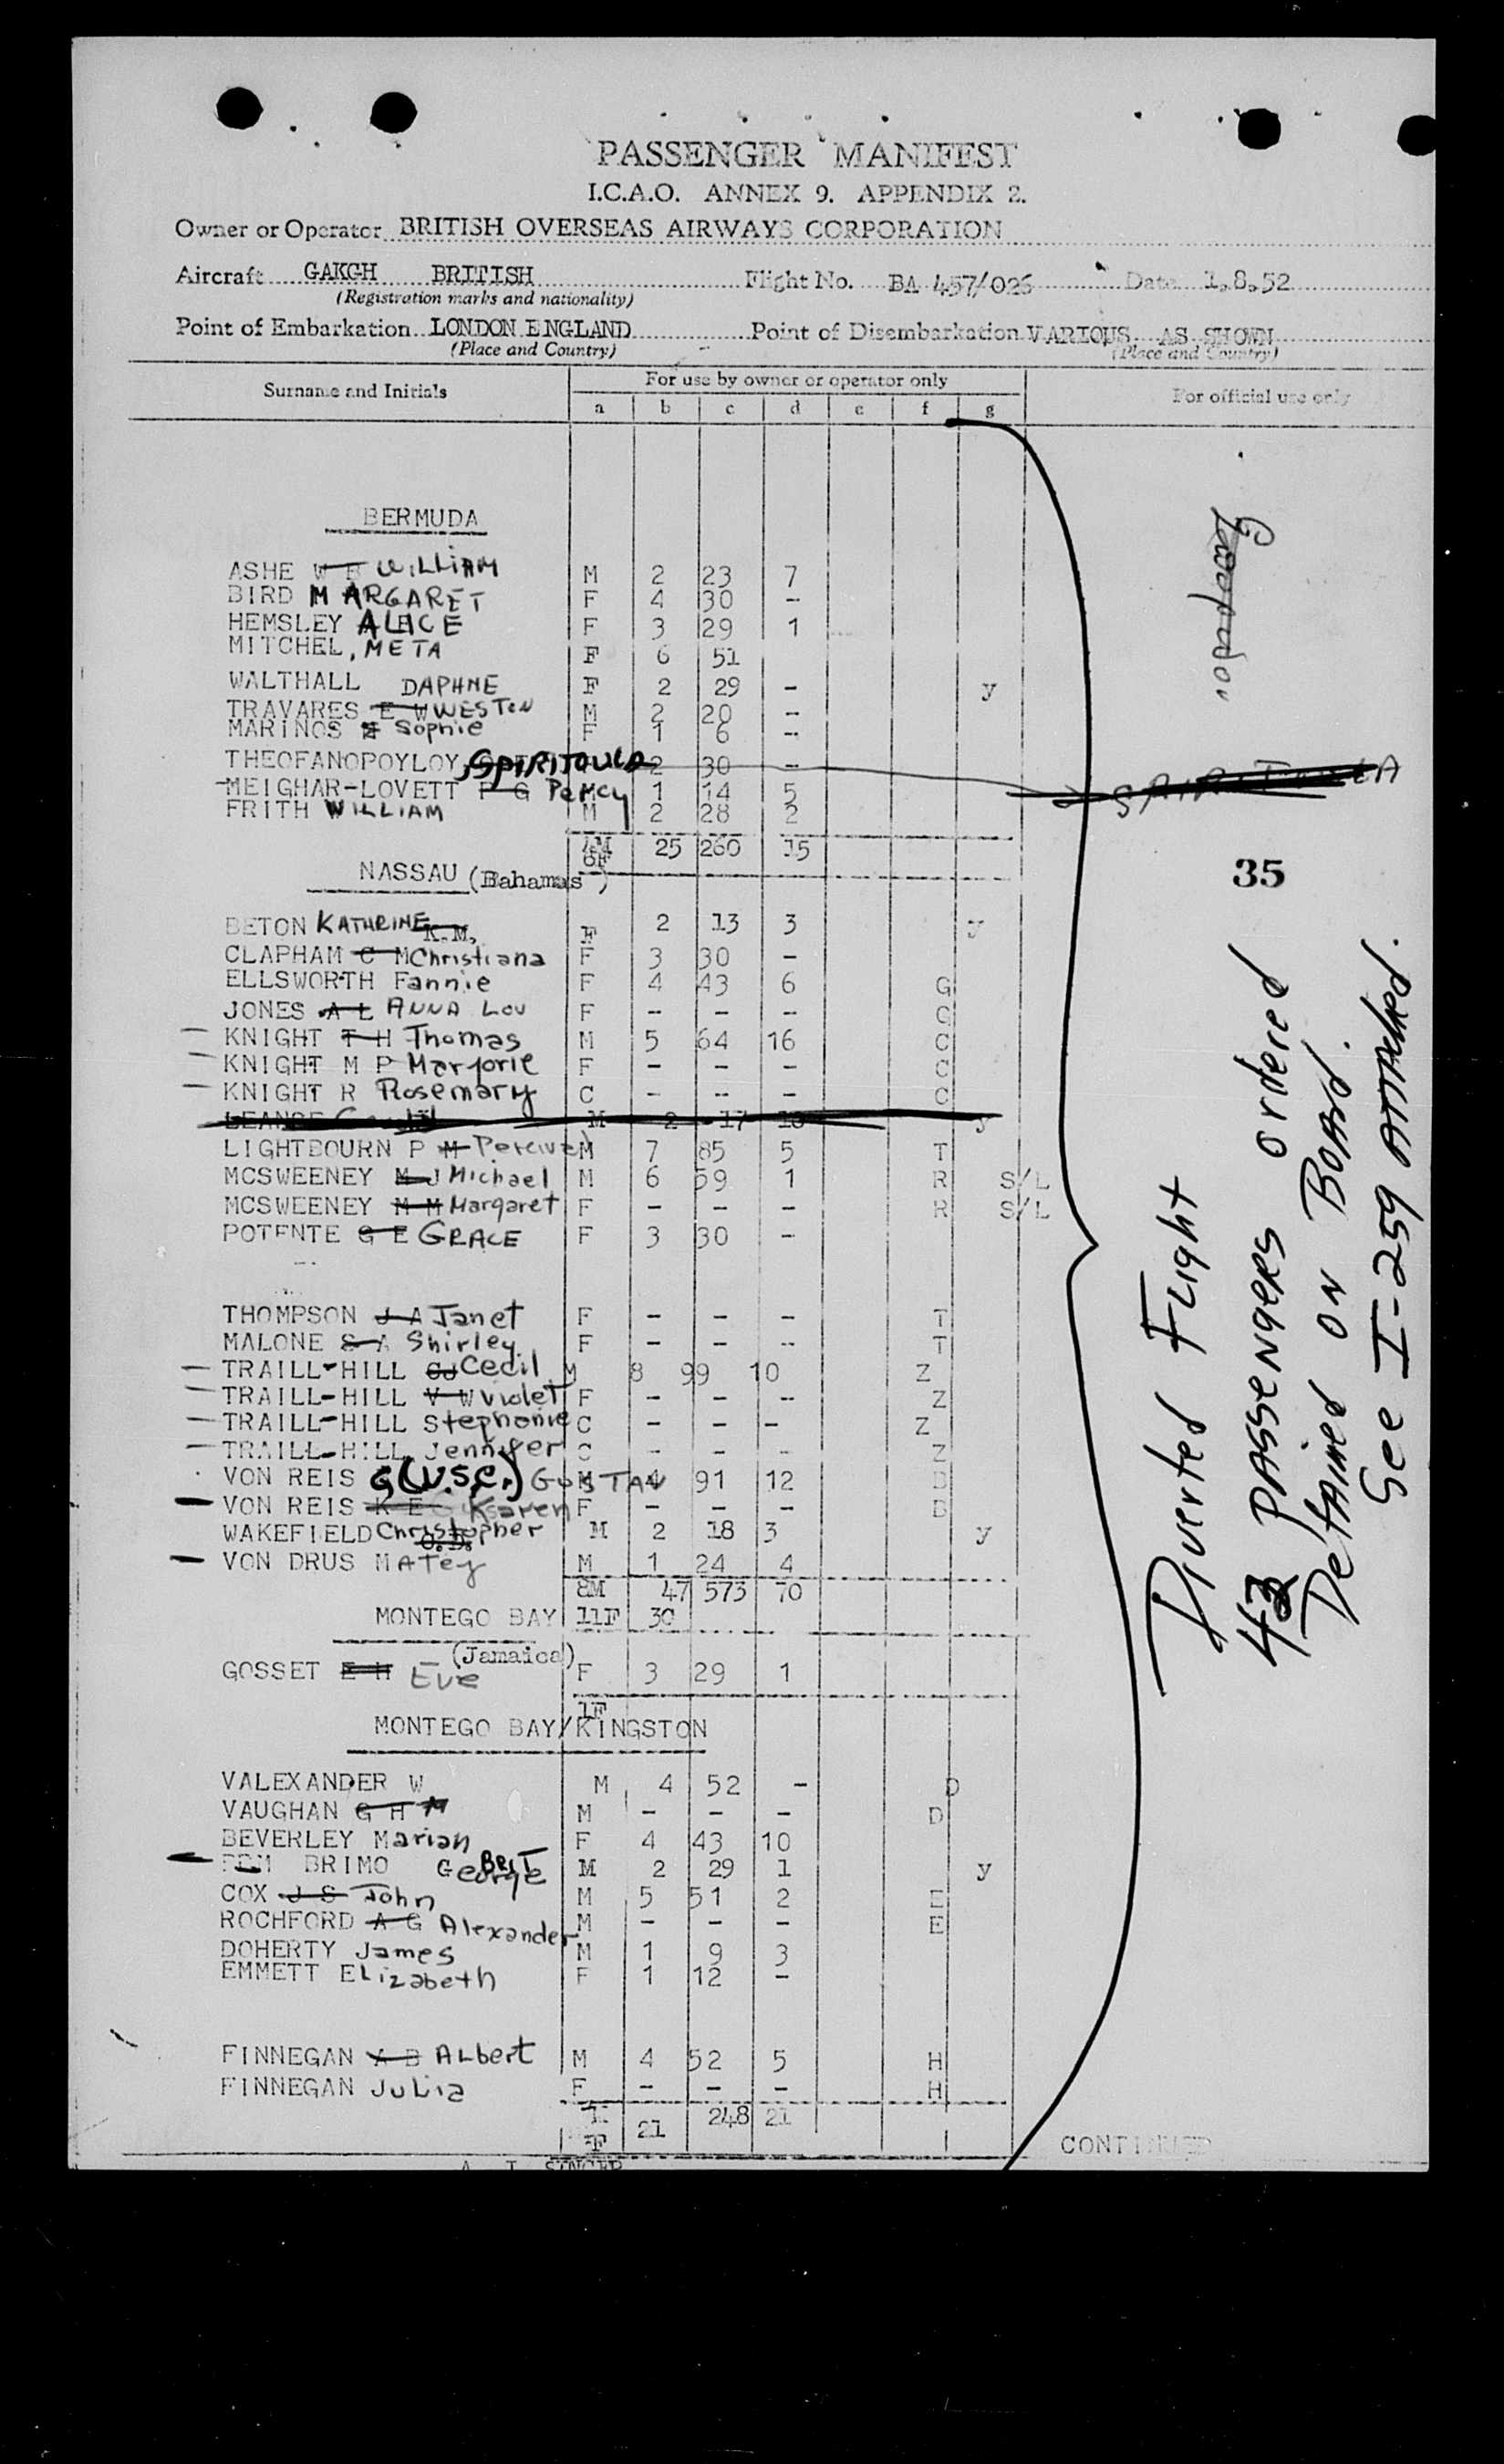 PASSENGER MANIFEST
I.C.A.O. ANNEX 9. APPENDIX 2.
Owner or Operator BRITISH OVERSEAS AIRWAYS CORPORATION
Aircraft GAKGH BRITISH Flight No. BA 457/026 Date 1.8.52
(Registration marks and nationality)
Point of Embarkation LONDON ENGLAND Point of Disembarkation VARIOUS AS SHOWN
(Place and Country) (Place and Country)
Surname and Initials For use by owner or operator only For official use only
a b c d e f g
BERMUDA
ASHE W B WILLIAM M 2 23 7
BIRD MARGARET F 4 30 -
HEMSLEY ALICE F 3 29 1
MITCHEL, META F 6 51
WALTHALL DAPHNE F 2 29 - y
TRAVARES E W WESTON M 2 20 -
MARINOS Sophie F 1 6 -
THEOFANOPOYLOY SPIRITOULA 2 30 -
MEIGHAR-LOVETT P G Percy 1 14 5
FRITH WILLIAM M 2 28 2
4M 25 260 15
6F
NASSAU (Bahamas)
35
BETON KATHRINE K.M. F 2 13 3 y
CLAPHAM C M Christiana F 3 30 -
ELLSWORTH Fannie F 4 43 6 G
JONES A L ANNA LOU F - - - G
- KNIGHT T H Thomas M 5 64 16 C
- KNIGHT M P Marjorie F - - - C
- KNIGHT R Rosemary C - - - C
M 2 17 y
LIGHTBOURN P M Percival M 7 85 5 T
MCSWEENEY M J Michael M 6 59 1 R S/L
MCSWEENEY M M Margaret F - - - R S/L
POTENTE G E GRACE F 3 30 -
THOMPSON J A Janet F - - - T
MALONE S A Shirley F - - - T
- TRAILL-HILL CJ Cecil M 8 99 10 Z
- TRAILL-HILL V W Violet F - - - Z
- TRAILL-HILL Stephonie C - - - Z
- TRAILL-HILL Jennifer C - - - Z
VON REIS G (U.S.C.) GUSTAV M 4 91 12 B
- VON REIS K E Karen F - - - B
WAKEFIELD Christopher M 2 18 3 y
- VON DRUS MATey M 1 24 4
8M 47 573 70
MONTEGO BAY 11F 30
(Jamaica)
GOSSET E H Eve F 3 29 1
1F
MONTEGO BAY/KINGSTON
VALEXANDER W M 4 52 - D
VAUGHAN G H M M - - - D
BEVERLEY Marian F 4 43 10
- BRIMO George BRIT M 2 29 1 y
COX J S John M 5 51 2 E
ROCHFORD A G Alexander M - - - E
DOHERTY James M 1 9 3
EMMETT Elizabeth F 1 12 -
FINNEGAN A B Albert M 4 52 5 H
FINNEGAN Julia F - - - H
21 248 21
F
CONTINUED
Diverted Flight
43 passengers ordered
Detained on Board.
See I-259 attached.